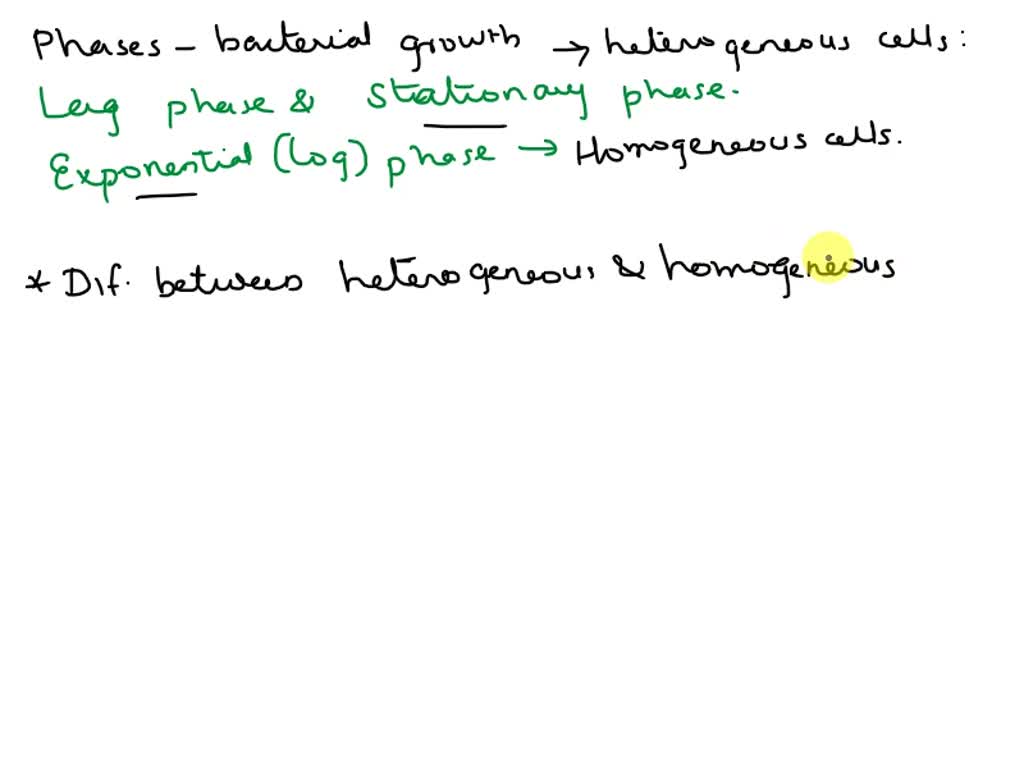 Phases - bacterial growth → heterogeneous cells:
Lag phase & stationary phase.
Exponential (log) phase → Homogeneous cells.
* Dif. between heterogeneous & homogeneous